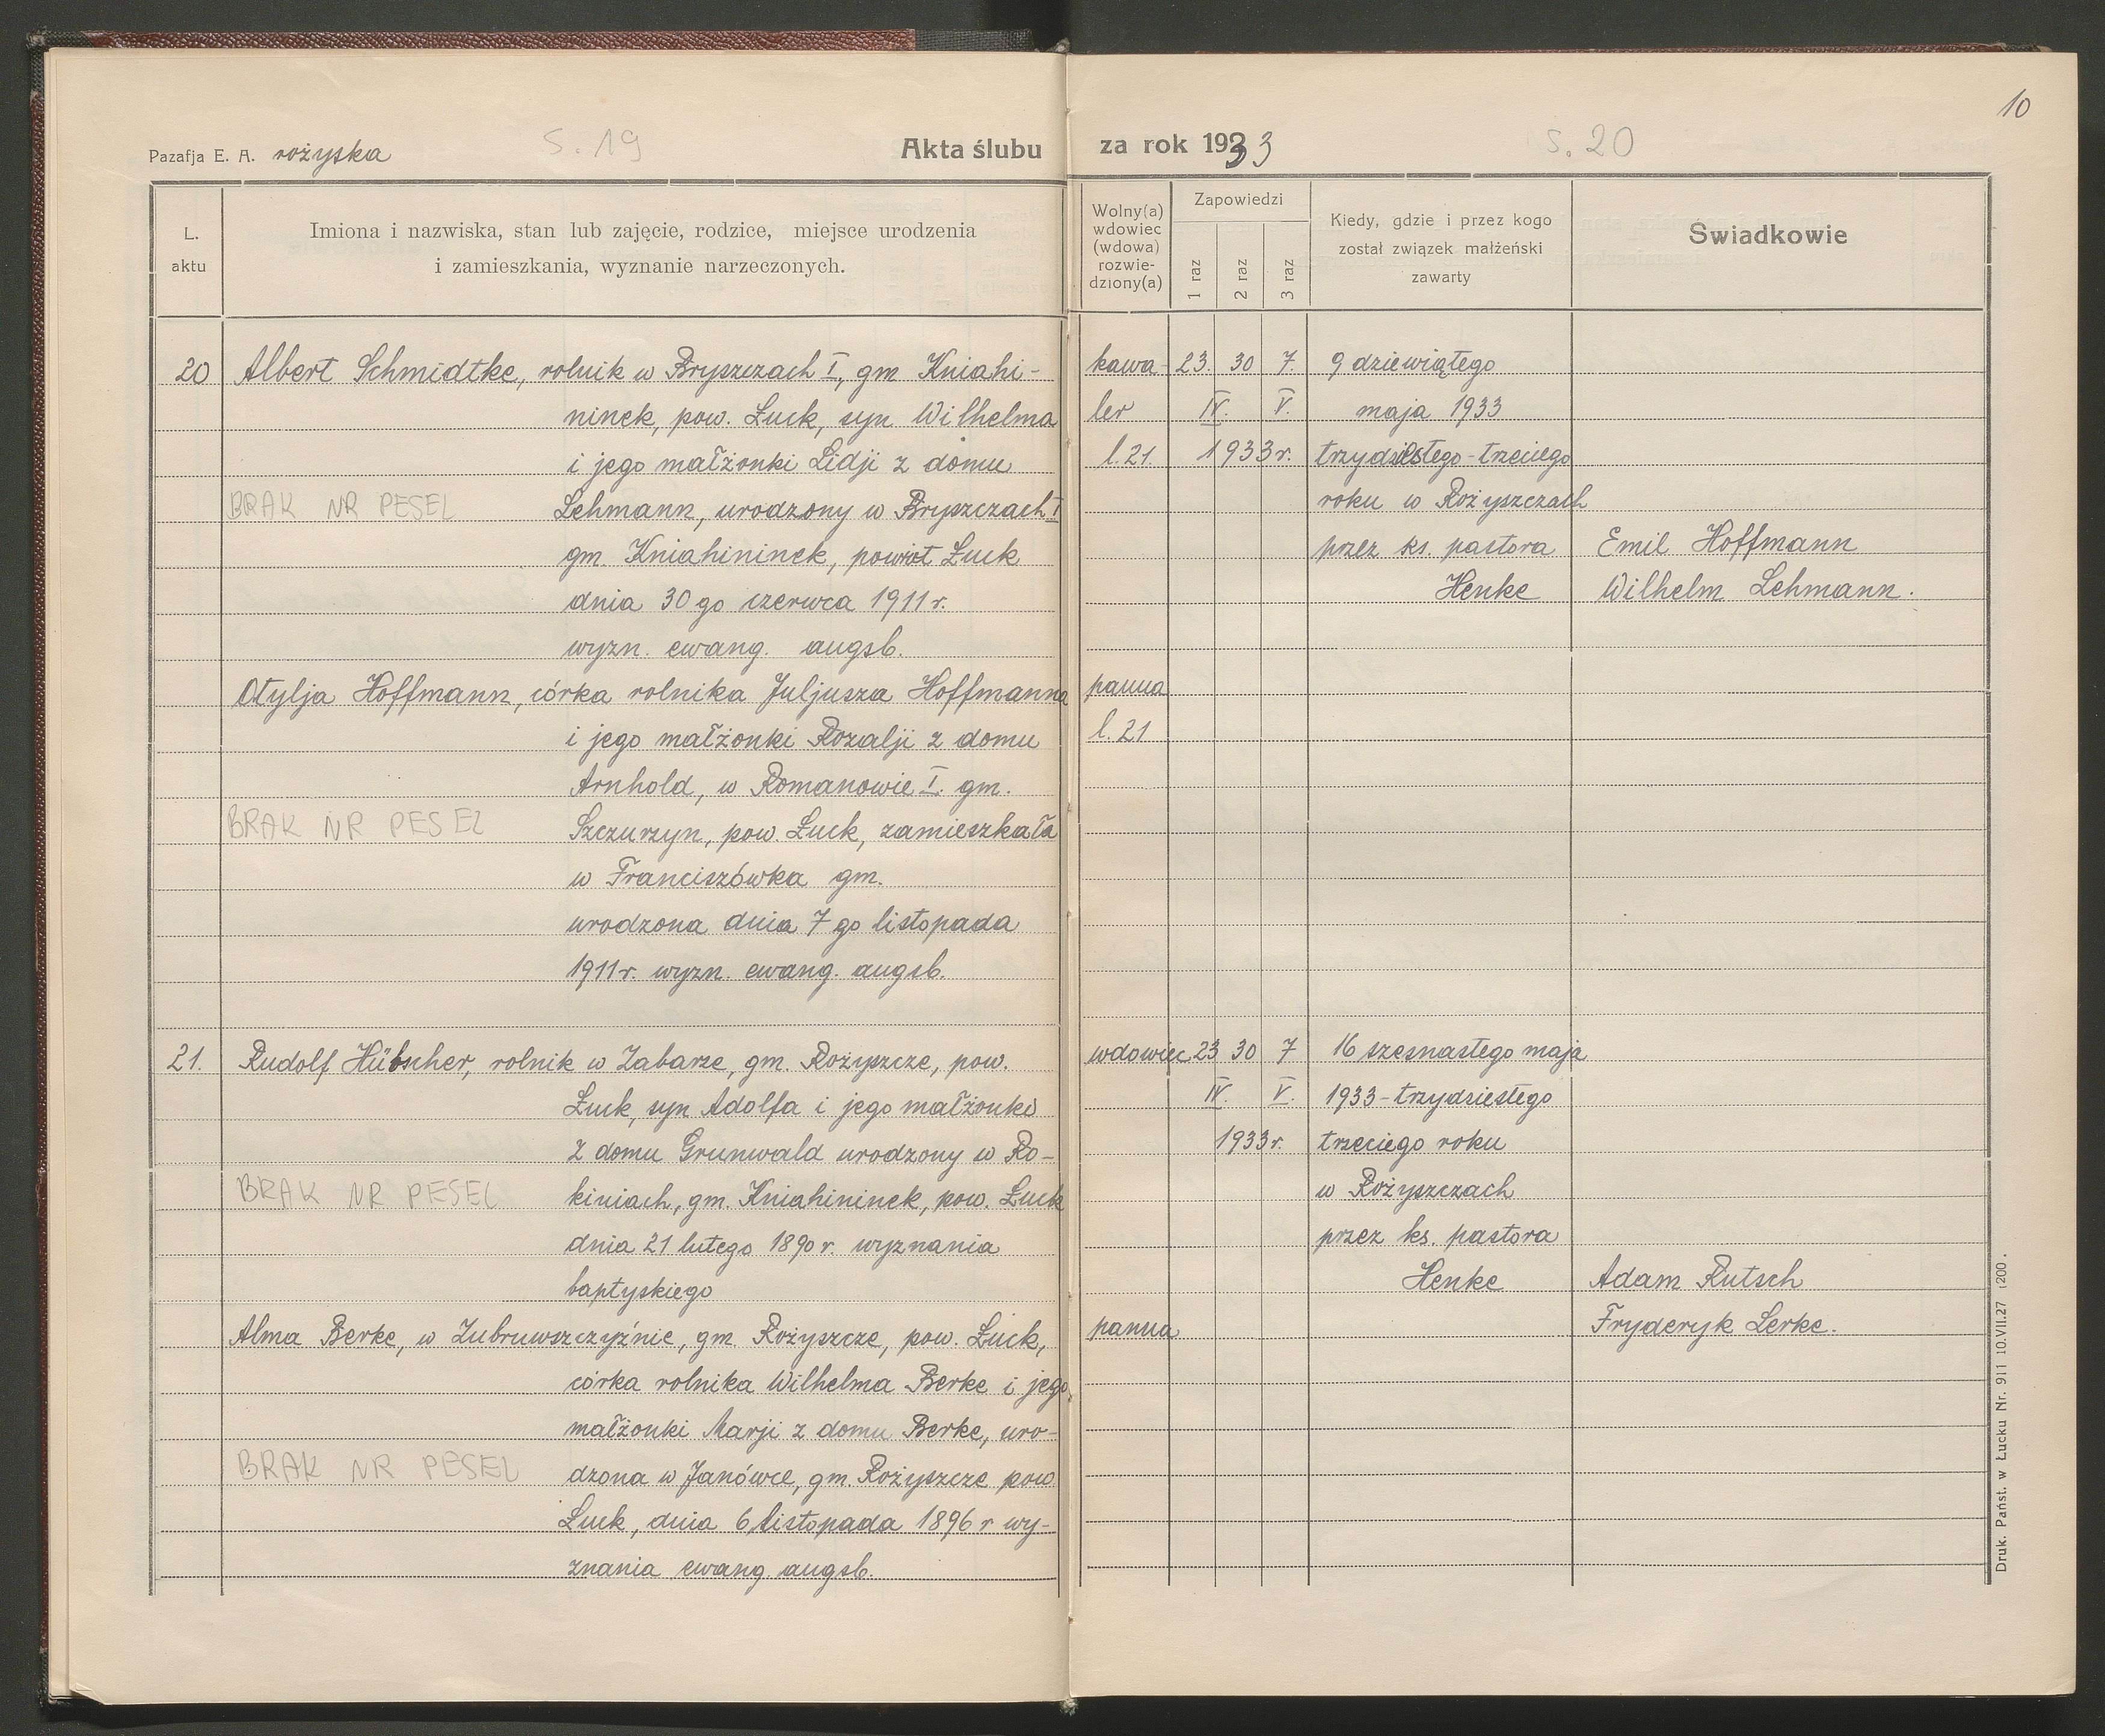 10
Pazafja E. A. rożyska
S. 19
Akta ślubu
za rok 1933
S. 20
L. aktu
Imiona i nazwiska, stan lub zajęcie, rodzice, miejsce urodzenia
i zamieszkania, wyznanie narzeczonych.
Wolny(a)
wdowiec
(wdowa)
rozwie-
dziony(a)
Zapowiedzi
1 raz
2 raz
3 raz
Kiedy, gdzie i przez kogo
został związek małżeński
zawarty
Swiadkowie
20 Albert Schmidtke, rolnik w Bryszczach I, gm Kniahi-
ninek, pow. Łuck, syn Wilhelma
i jego małżonki Lidji z domu
BRAK NR PESEL
Lehmann, urodzony w Bryszczach I
gm. Kniahininek, powiat Łuck
dnia 30 go czerwca 1911 r.
wyzn. ewang. augsb.
Otylja Hoffmann, córka rolnika Juljusza Hoffmanna
i jego małżonki Rozalji z domu
Arnhold, w Romanowie I. gm.
BRAK NR PESEL
Szczurzyn, pow. Łuck, zamieszkała
w Franciszówka gm.
urodzona dnia 7 go listopada
1911 r. wyzn. ewang. augsb.
kawa-
ler
l. 21.
23. 30 7.
IV. V.
1933 r.
9 dziewiątego
maja 1933
trzydziestego-trzeciego
roku w Rożyszczach
przez ks. pastora
Henke
Emil Hoffmann
Wilhelm Lehmann.
panna
l. 21
21. Rudolf Hübscher, rolnik w Zabarze, gm. Rożyszcze, pow.
Łuck, syn Adolfa i jego małżonki
z domu Grunwald urodzony w Ro-
BRAK NR PESEL
kiniach, gm. Kniahininek, pow. Łuck
dnia 21 lutego 1890 r. wyznania
baptyskiego
Alma Berke, w Zubruwszczyźnie, gm. Rożyszcze, pow. Łuck,
córka rolnika Wilhelma Berke i jego
małżonki Marji z domu Berke, uro-
BRAK NR PESEL
dzona w Janówce, gm. Rożyszcze pow
Łuck, dnia 6 listopada 1896 r wy-
znania ewang. augsb.
wdowiec
23 30 7
IV. V.
1933 r.
16 szesnastego maja
1933-trzydziestego
trzeciego roku
w Rożyszczach
przez ks. pastora
Henke
Adam Rutsch
Fryderyk Lerke.
panna
Druk. Państ. w Łucku Nr. 911 10.VII.27 1200.